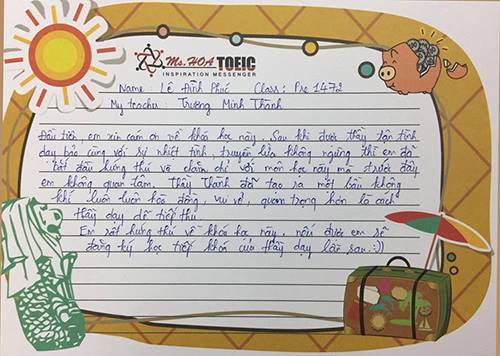 Ms. HOA TOEIC
INSPIRATION MESSENGER
Name : Lê Đình Phúc Class : Pre 1472
My teacher : Trương Minh Thành
Đầu tiên em xin cảm ơn về khóa học này. Sau khi được thầy tận tình
dạy bảo cùng với sự nhiệt tình, truyền lửa không ngừng thì em đã
bắt đầu hứng thú và chăm chỉ với môn học này mà trước đây
em không quan tâm. Thầy Thành đã tạo ra một bầu không
khí luôn luôn hòa đồng, vui vẻ, quan trọng hơn là cách
thầy dạy dễ tiếp thu.
Em rất hứng thú về khóa học này, nếu được em sẽ
đăng ký học tiếp khóa của thầy dạy lần sau :))